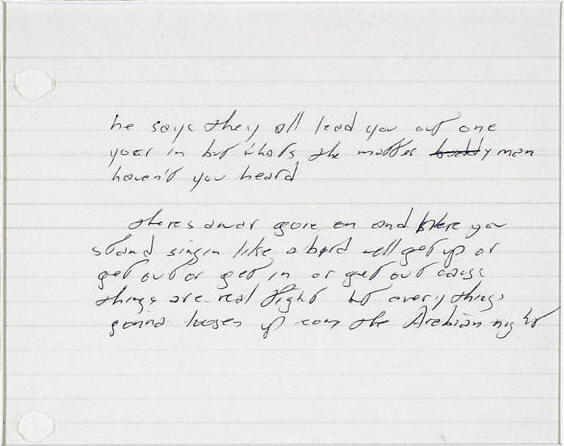 he says they all lead you out one
your in but whats the matter buddy man
haven't you heard
theres a war goin on and here you
stand singin like a bird well get up or
get out or get in or get out cause
things are real tight but everythings
gonna loosen up com the Arabian night